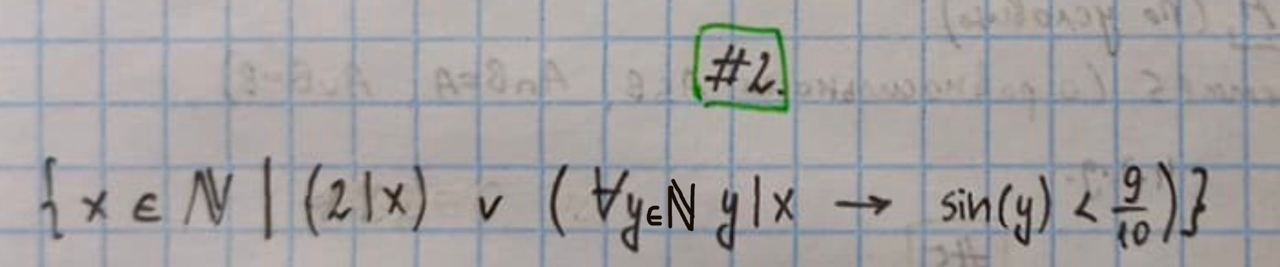 #2.
{ x ∈ ℕ | (2|x) ∨ ( ∀y∈ℕ y|x → sin(y) < 9/10 ) }